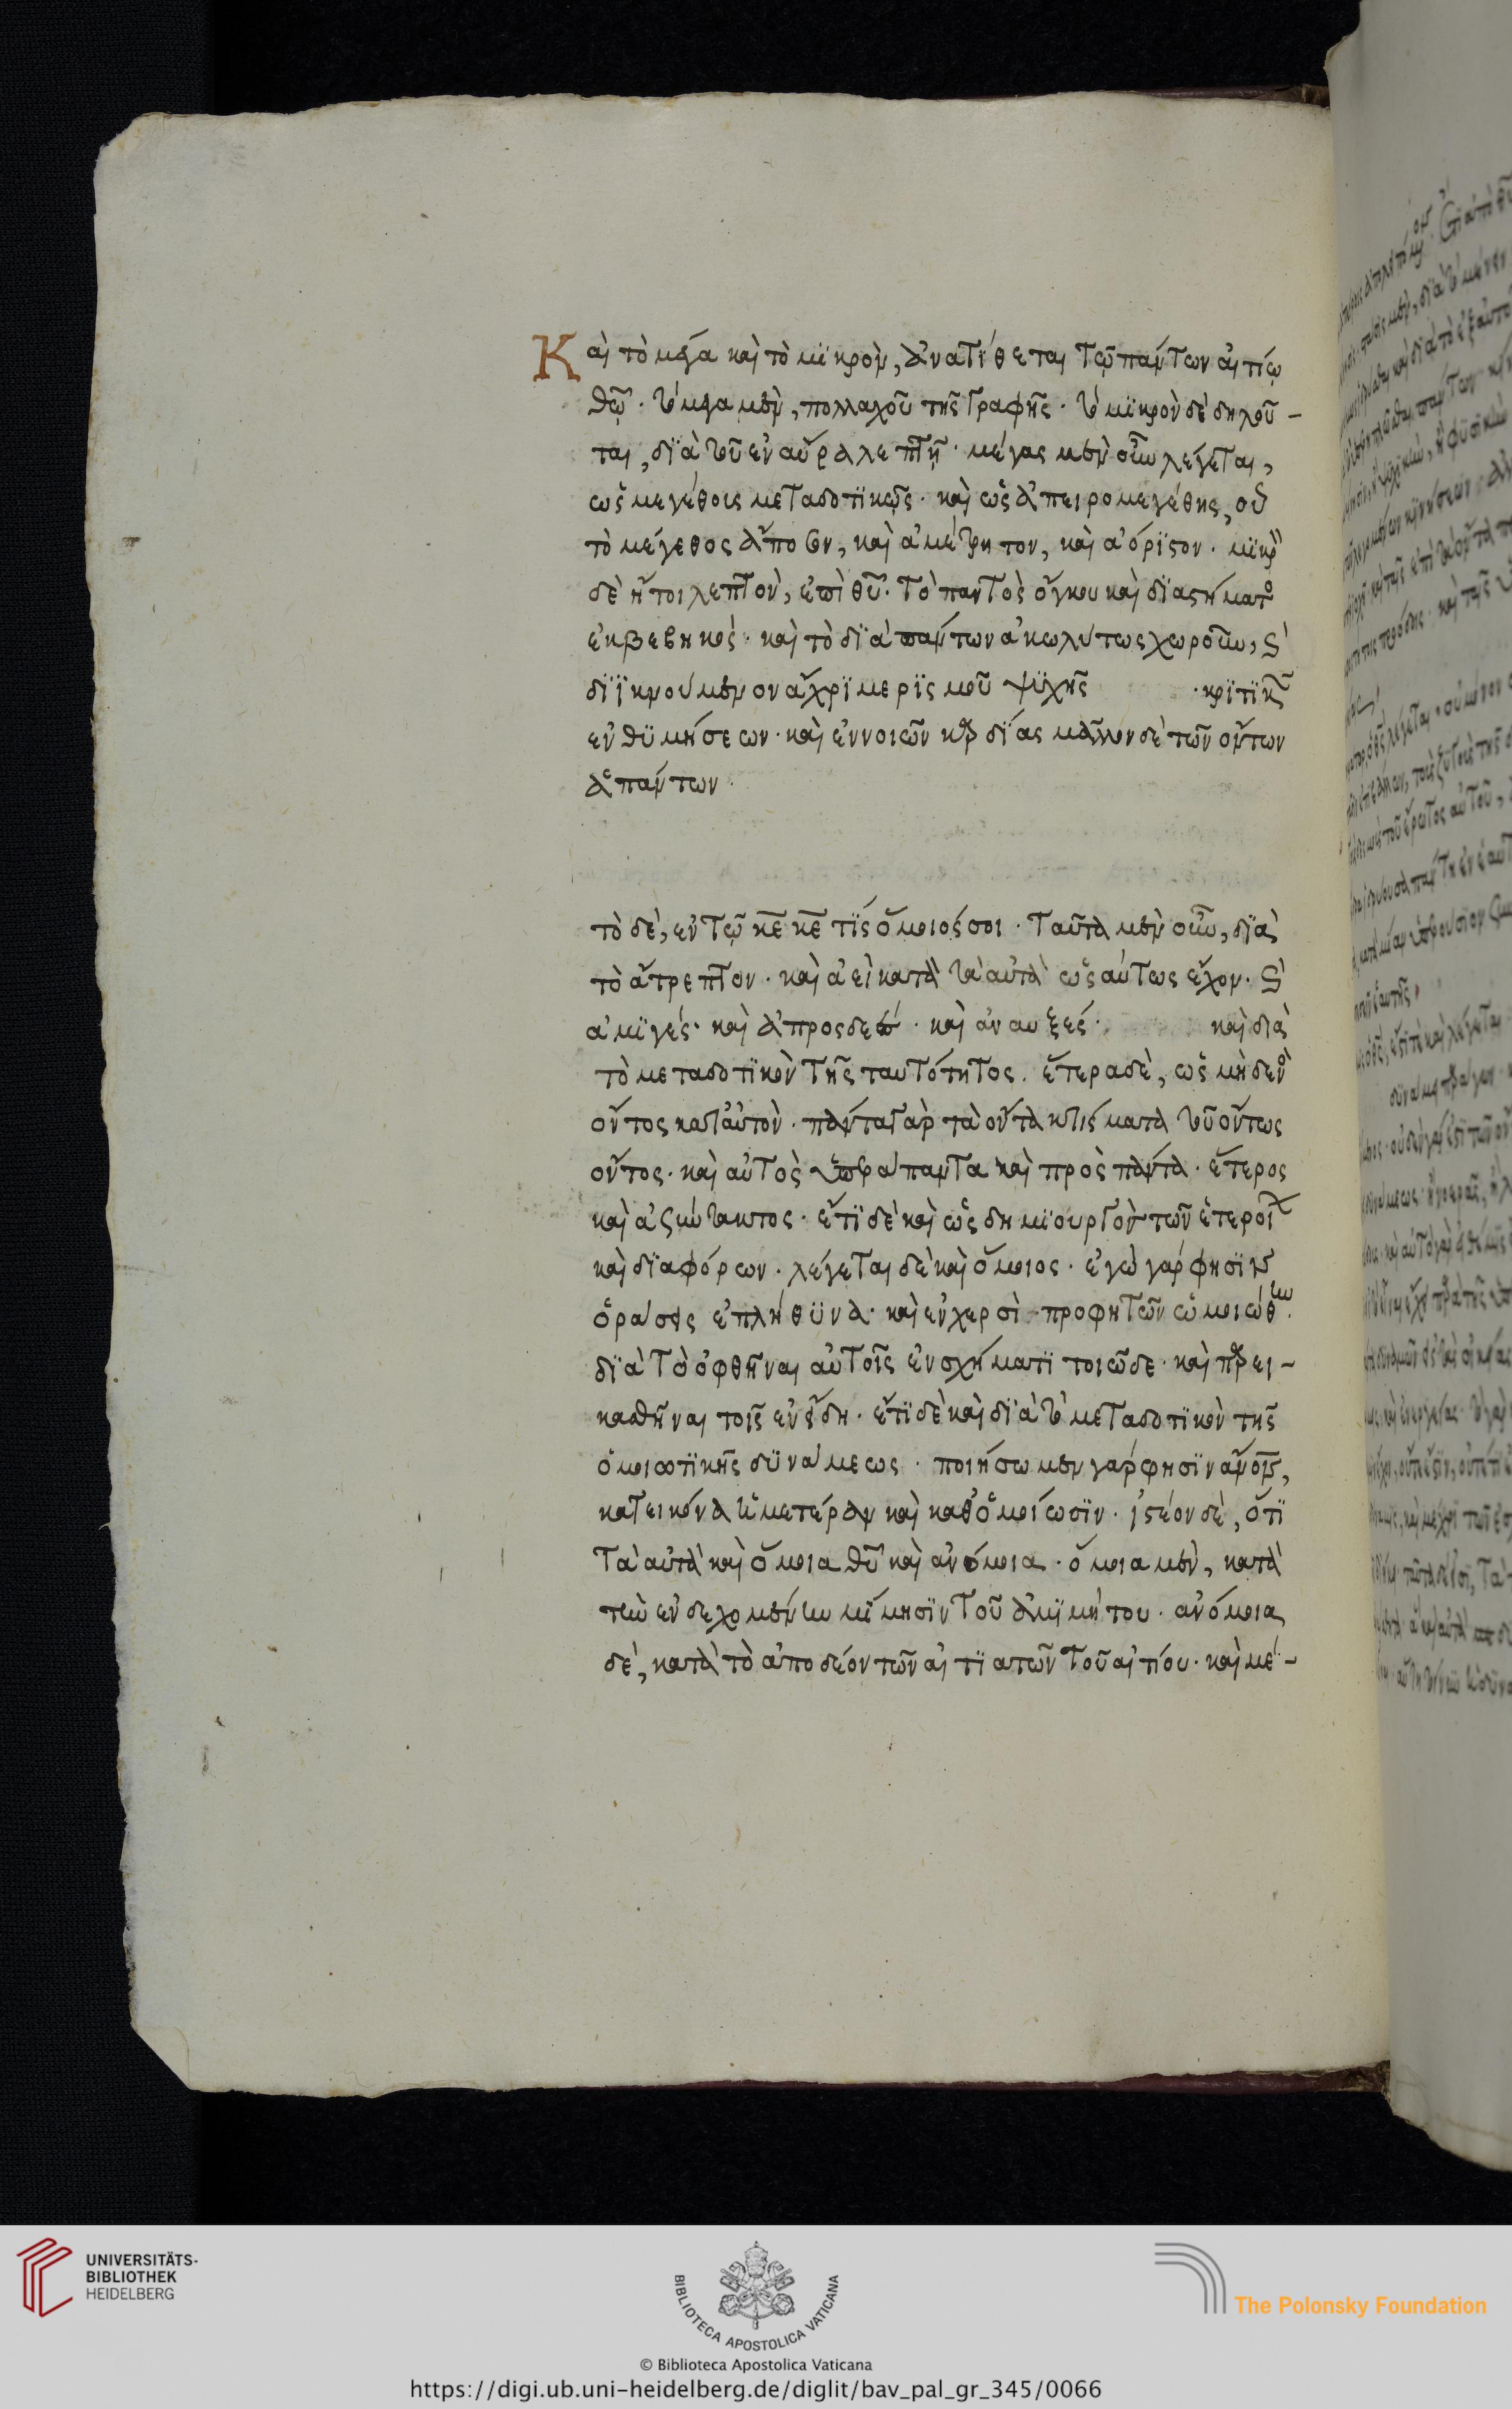 Καὶ τὸ μέγα καὶ τὸ μϊκρὸν, ἀνατίθεται τῶ πάντων αἰτίω
θῶ. τὸ μέγα μὲν, πολλαχοῦ τῆς γραφῆς. τὸ μϊκρὸν δὲ δηλοῦ-
ται, δϊὰ τοῦ ἐν αὔρα λεπτῆ. μέγας μὲν οὖν λέγεται,
ὡς μεγέθους μεταδοτϊκῶς. καὶ ὡς ἀπειρομεγέθης, οὗ
τὸ μέγεθος ἄποσον, καὶ ἀμέτρητον, καὶ ἀόρϊστον. μϊκρὸν
δὲ ἤτοι λεπτὸν, ἐπὶ θῦ. τὸ παντὸς ὄγκου καὶ δϊαστήματος
ἐκβεβηκὸς. καὶ τὸ δϊὰ πάντων ἀκωλύτως χωροῦν, καὶ
δϊϊκνούμενον ἄχρϊ μερϊσμοῦ ψϋχῆς . κρϊτϊκῆς
ἐνθϋμήσεων. καὶ ἐννοιῶν καρδίας μᾶλλον δὲ τῶν ὄντων
ἁπάντων.
τὸ δὲ, ἐν τῶ κε κε τίς ὅμοιός σοι. ταῦτα μὲν οὖν, δϊὰ
τὸ ἄτρεπτον. καὶ ἀεὶ κατὰ τὰ αὐτὰ ὡσαύτως ἔχον. καὶ
ἀμϊγές. καὶ ἀπροσδεὲς. καὶ ἀναυξές. καὶ διὰ
τὸ μεταδοτϊκὸν τῆς ταυτότητος. ἕτερα δὲ, ὡς μηδενὸς
ὄντος κατ' αὐτὸν. πάντα γὰρ τὰ ὄντα κτίσματα τοῦ ὄντως
ὄντος. καὶ αὐτὸς ὑπὲρ ἅπαντα καὶ πρὸς πάντα. ἕτερος
καὶ ἀσύντακτος. ἔτϊ δὲ καὶ ὡς δημϊουργὸν τῶν ἑτεροίων
καὶ δϊαφόρων. λέγεται δὲ καὶ ὅμοιος. ἐγὼ γάρ φησϊν
ὁράσεις ἐπλήθϋνα. καὶ ἐν χερσὶ προφητῶν ὡμοιώθην.
δϊὰ τὸ ὀφθῆναι αὐτοῖς ἐν σχήματϊ τοιῶδε. καὶ παρει-
κασθῆναι τοῖς ἐν εἴδη. ἔτϊ δὲ καὶ δϊὰ τὸ μεταδοτϊκὸν τῆς
ὁμοιωτϊκῆς δϋνάμεως. ποιήσωμεν γάρ φησϊν ἄνον,
κατεικόνα ἡμετέραν καὶ καθ' ὁμοίωσϊν. ἰστέον δὲ, ὅτϊ
τὰ αὐτὰ καὶ ὅμοια θῦ καὶ ἀνόμοια. ὅμοια μὲν, κατὰ
τὴν ἐνδεχομένην μίμησϊν τοῦ ἀμϊμήτου. ἀνόμοια
δὲ, κατὰ τὸ ἀποδέον τῶν αἰτϊατῶν τοῦ αἰτίου. καὶ μέ-
UNIVERSITÄTS-
BIBLIOTHEK
HEIDELBERG
BIBLIOTECA APOSTOLICA VATICANA
The Polonsky Foundation
© Biblioteca Apostolica Vaticana
https://digi.ub.uni-heidelberg.de/diglit/bav_pal_gr_345/0066